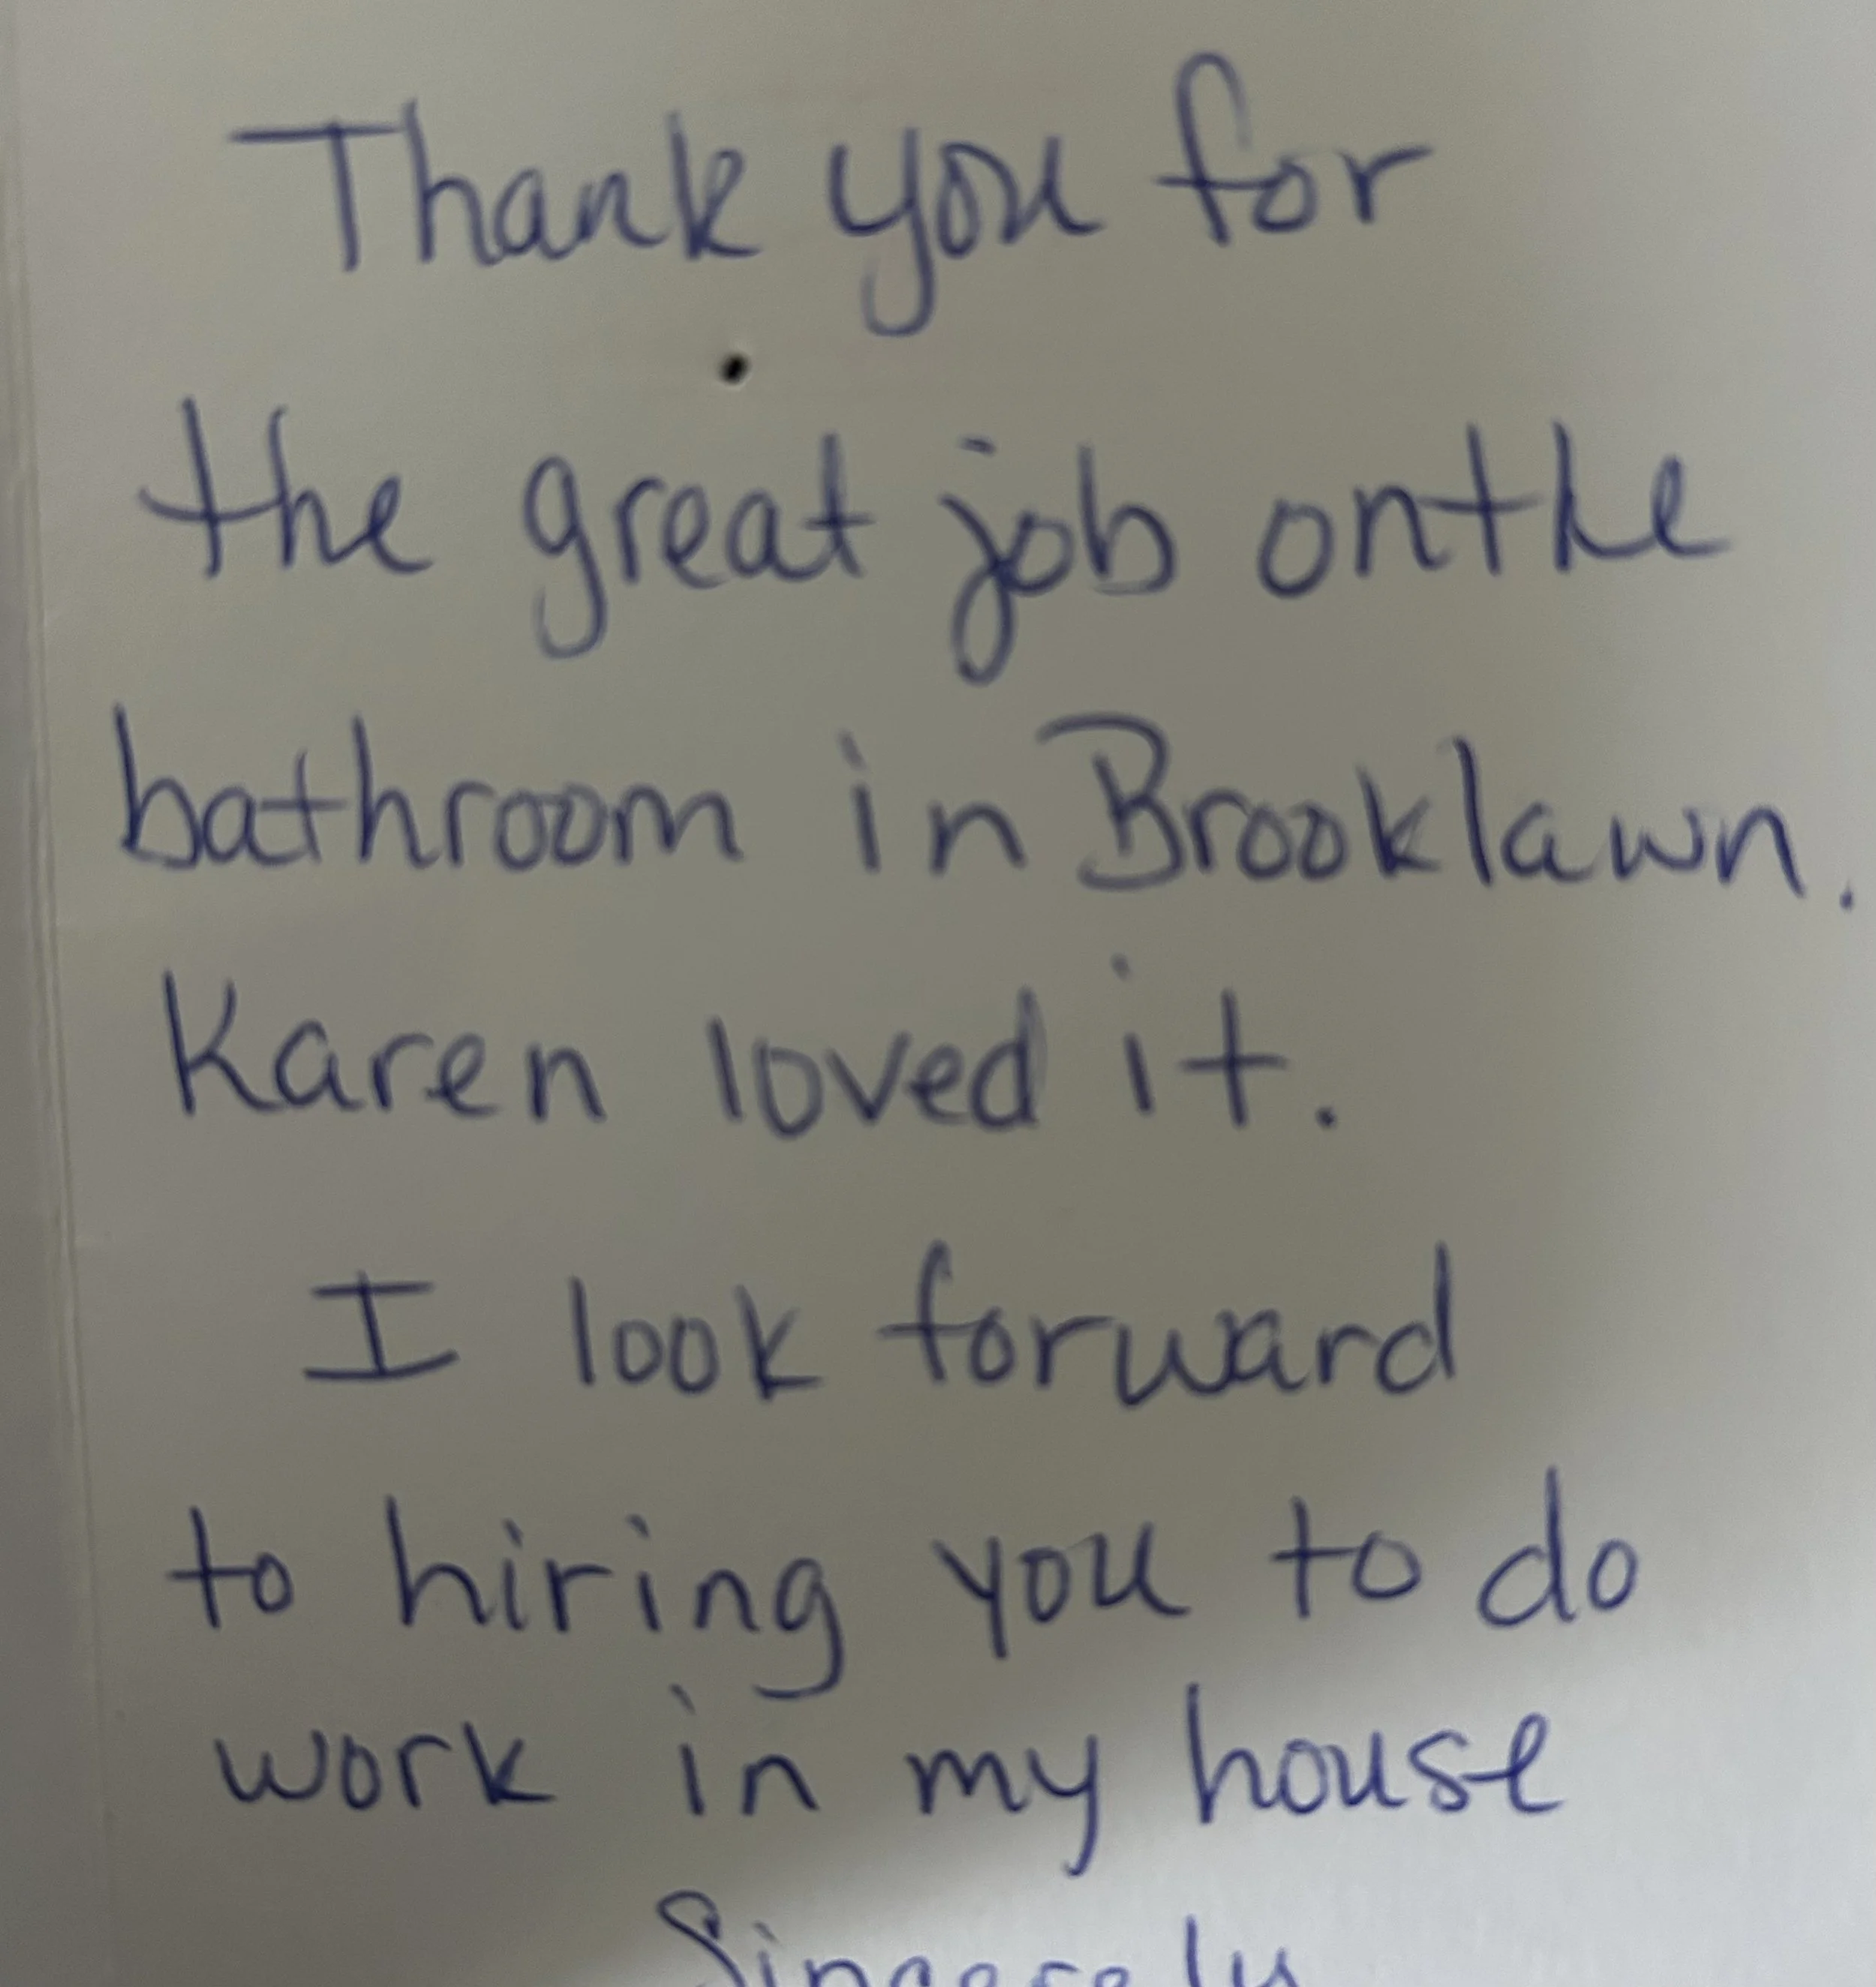 Thank you for
the great job onthe
bathroom in Brooklawn.
Karen loved it.
I look forward
to hiring you to do
work in my house
Sincerely